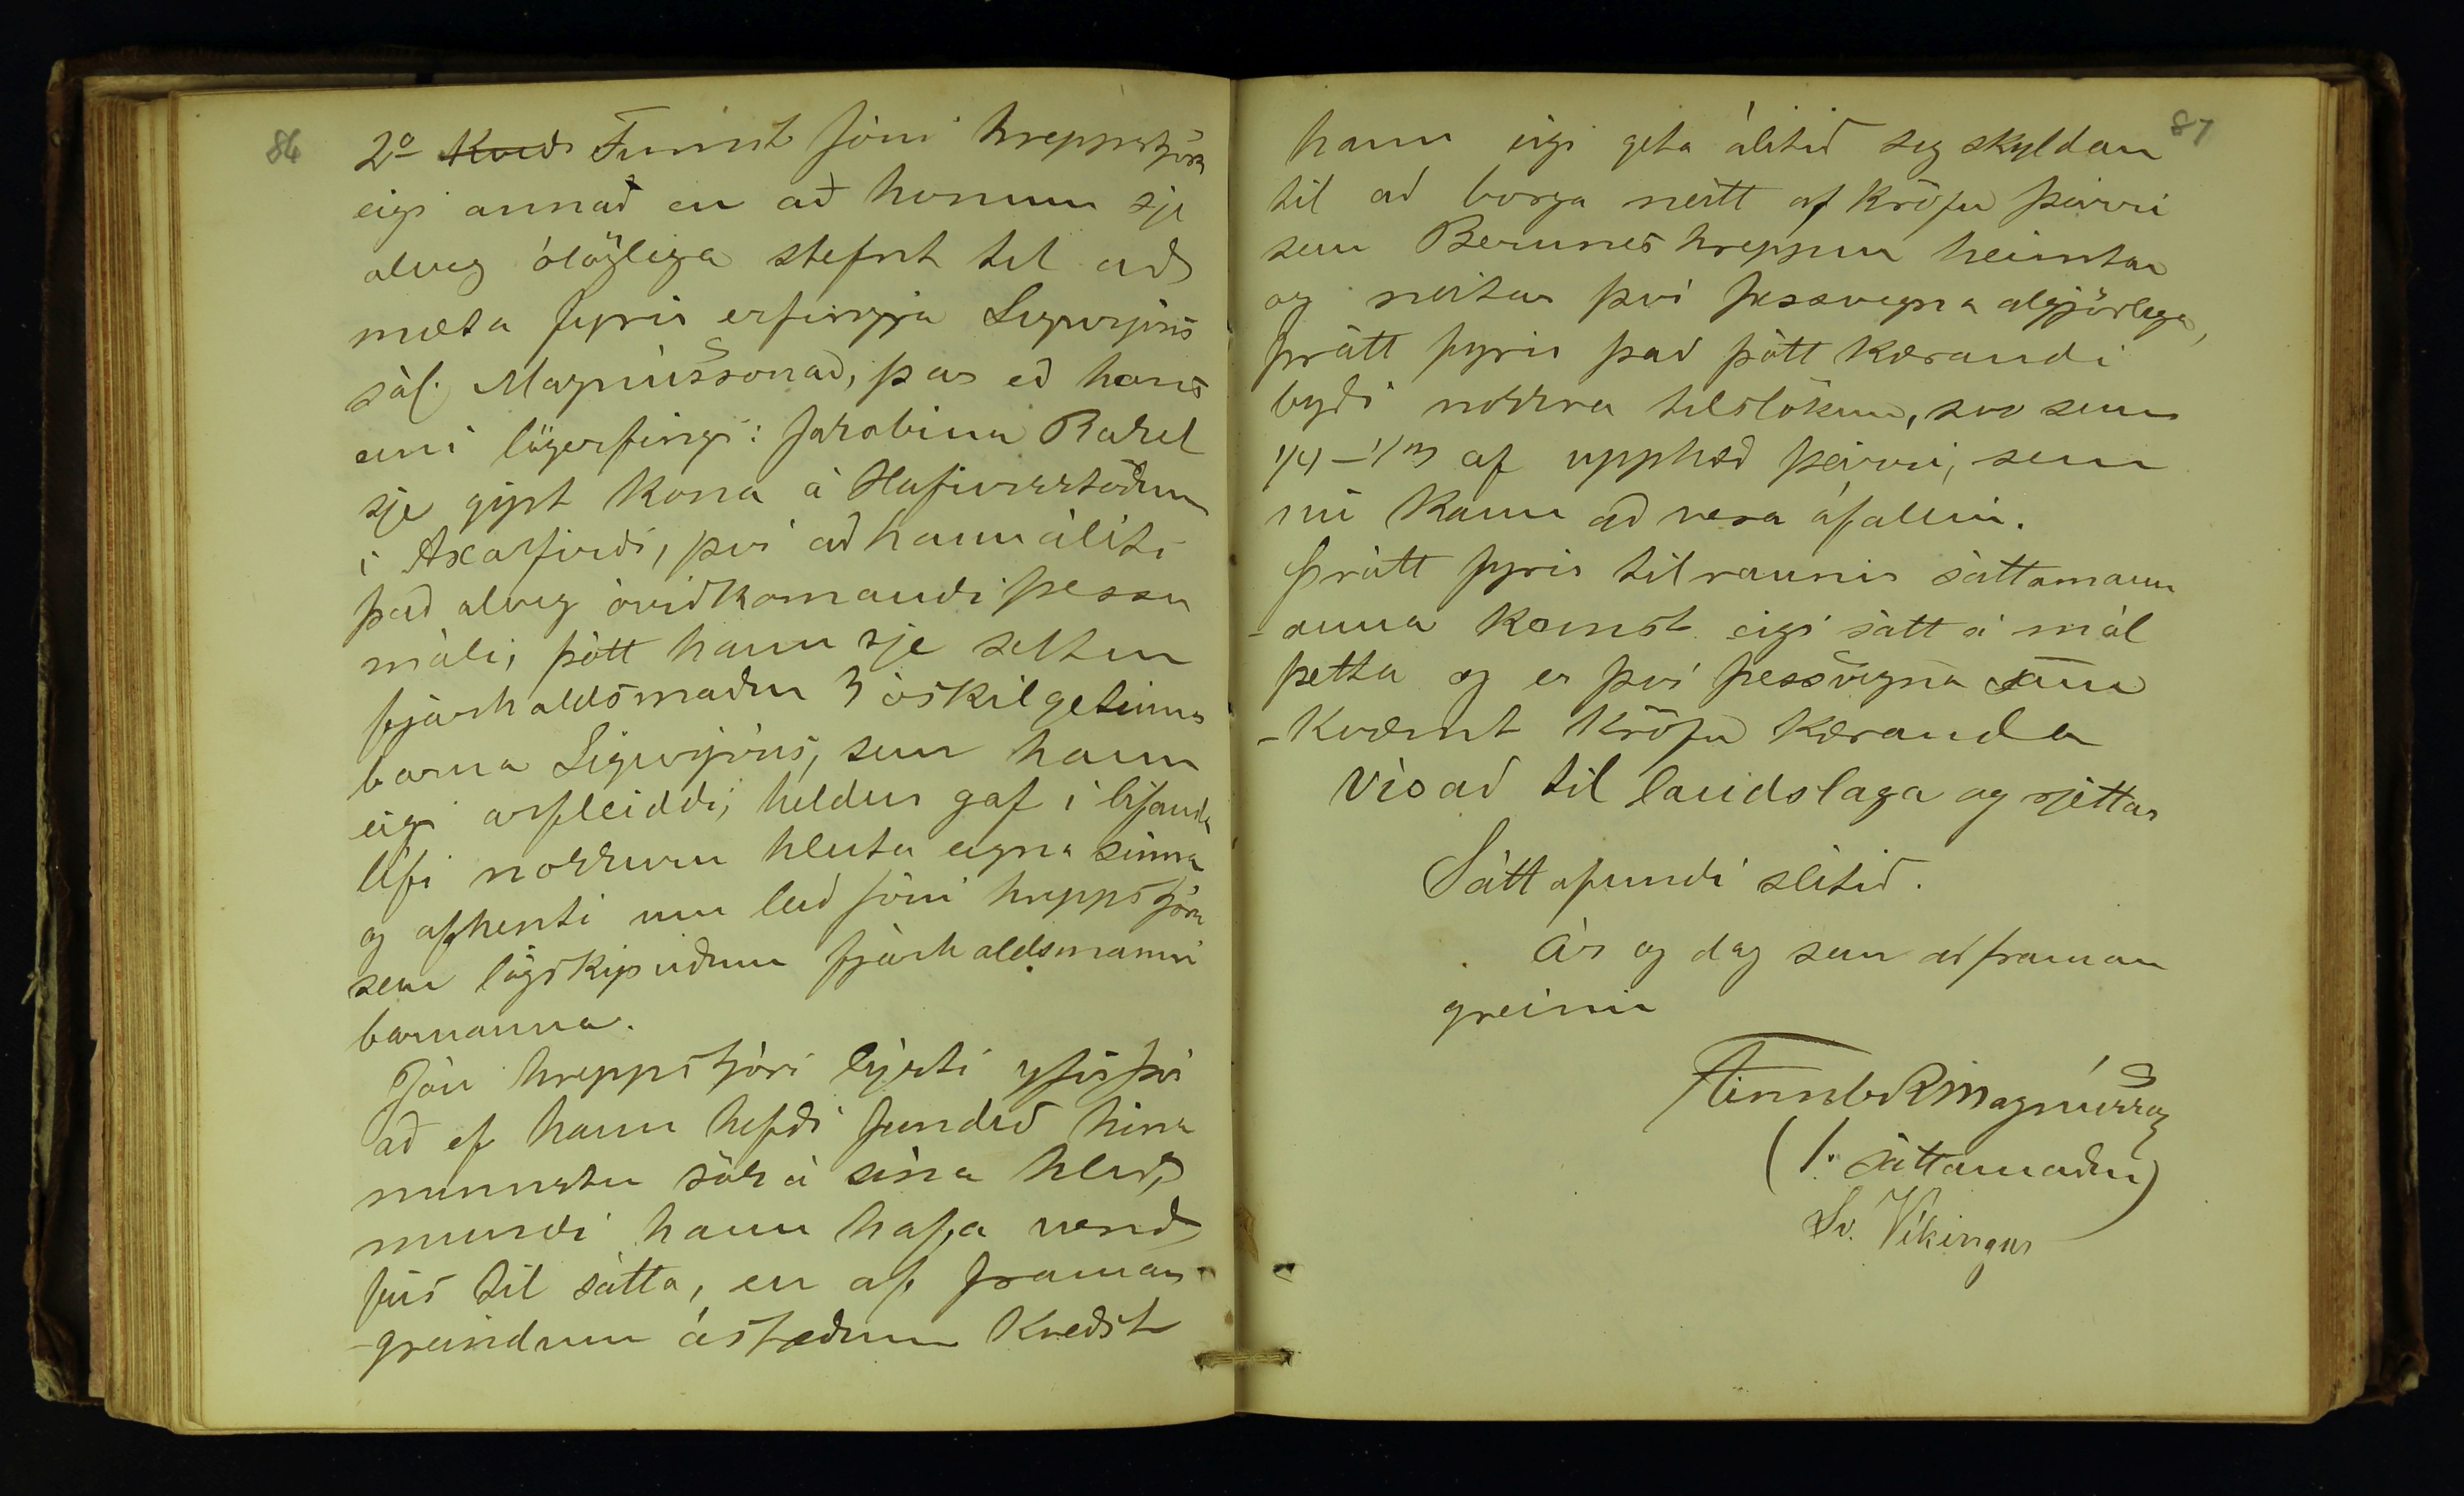 86
2º Kveðs Finnst Jóni hreppstjóra
eigi annað en að honum sje
alveg ólöglega stefnt til að
mæta fyrir erfingja Sigurjóns
sál. Magnússonar, þar eð hans
eini lögerfingi: Jakobína Rakel
sje gipt kona á Hafursstöðum
í Axarfirði, því að hann áliti
það alveg óviðkomandi þessu
máli, þótt hann sje settur
fjárhaldsmaður 3 óskilgetinna
barna Sigurjóns, sem hann
eigi arfleiddi, heldur gaf í lifanda
lífi nokkurn hluta eigna sinna
og afhenti um leið Jóni hreppstjóra
sem lögskipuðum fjárhaldsmanni
barnanna.
Jón hreppstjóri lýsti yfir því
að ef hann hefði fundið hina
minnstu sök á sína hlið,
mundi hann hafa verið
fús til sátta, en af framan-
-greindum ástæðum kveðst
87
hann eigi geta álitið sig skyldan
til að borga neitt af kröfu þeirri
sem Beruneshreppur heimtar
og neitar því þessvegna algjörlega,
þrátt fyrir það þótt kærandi
byði nokkra tilslökun, svo sem
1/4 - 1/3 af upphæð þeirri, sem
nú kann að vera áfallin.
Þrátt fyrir tilraunir sáttamann
-anna komst eigi sátt á mál
þetta og er því þessvegna sam
-kvæmt kröfu kæranda
vísað til landslaga og rjettar
Sáttafundi slitið.
Ár og dag sem að framan
greinir
Magnússon
(1. sáttamaður)
Sv. Víkingur